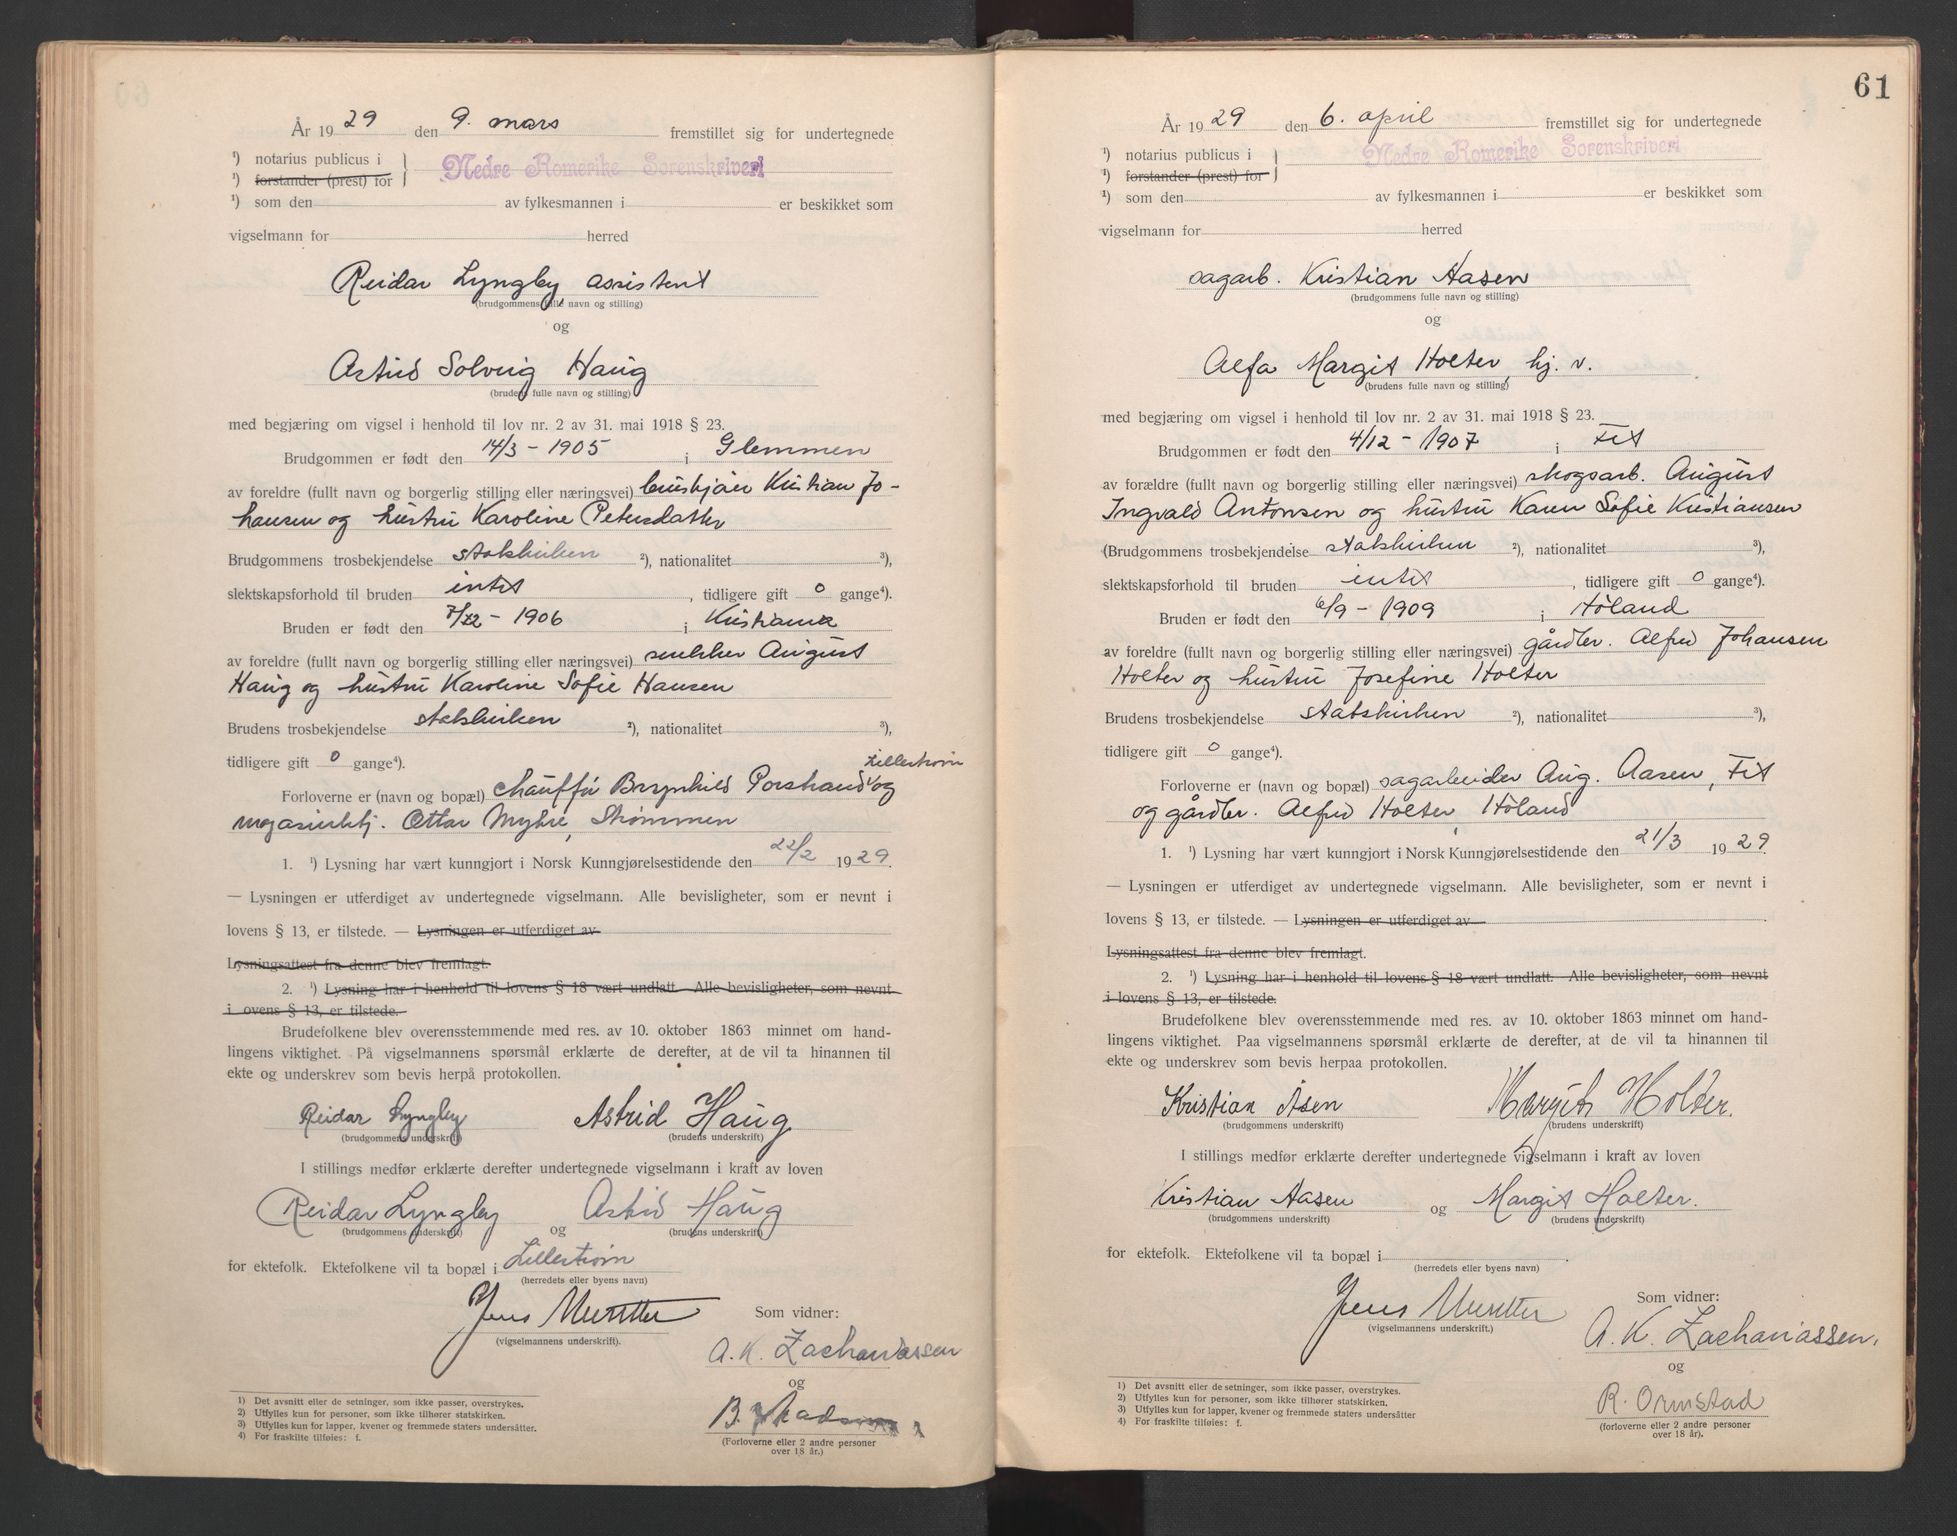 År 1929 den 9. mars fremstillet sig for undertegnede
¹) notarius publicus i
¹) forstander (prest) for
Nedre Romerike Sorenskriveri
¹) som den av fylkesmannen i er beskikket som
vigselmann for herred
Reidar Lyngby assistent
(brudgommens fulle navn og stilling)
og
Astrid Solveig Haug
(brudens fulle navn og stilling)
med begjæring om vigsel i henhold til lov nr. 2 av 31. mai 1918 § 23.
Brudgommen er født den 14/3 - 1905 i Glemmen
av foreldre (fullt navn og borgerlig stilling eller næringsvei) Kristian Jo-
hansen og hustru Karoline Petersdatter
Brudgommens trosbekjendelse statskirken ²), nationalitet ³),
slektskapsforhold til bruden intet, tidligere gift 0 gange⁴).
Bruden er født den 7/12 - 1906 i Kristiania
av foreldre (fullt navn og borgerlig stilling eller næringsvei) snekker August
Haug og hustru Karoline Sofie Hansen
Brudens trosbekjendelse statskirken ²), nationalitet ³),
tidligere gift 0 gange⁴).
Lillestrøm
Forloverne er (navn og bopæl) chauffør Brynhild og
Ottar Myhre, Strømmen
1. ¹) Lysning har vært kunngjort i Norsk Kunngjørelsestidende den 22/2 1929.
— Lysningen er utferdiget av undertegnede vigselmann. Alle bevisligheter, som er nevnt i
lovens § 13, er tilstede. — Lysningen er utferdiget av
Lysningsattest fra denne blev fremlagt.
2. ¹) Lysning har i henhold til lovens § 18 vært undlatt. Alle bevisligheter, som nevnt
i ovens § 13, er tilstede.
Brudefolkene blev overensstemmende med res. av 10. oktober 1863 minnet om hand-
lingens viktighet. På vigselmannens spørsmål erklærte de derefter, at de vil ta hinannen til
ekte og underskrev som bevis herpå protokollen.
Reidar Lyngby Astrid Haug
(brudgommens underskrift) (brudens underskrift)
I stillings medfør erklærte derefter undertegnede vigselmann i kraft av loven
Reidar Lyngby og Astrid Haug
(brudgommens underskrift) (brudens underskrift)
for ektefolk. Ektefolkene vil ta bopæl i Lillestrøm
(herredets eller byens navn)
Jens Muretter Som vidner:
(vigselmannens underskrift).
A. K. Zachariassen
og
B.
(Forloverne eller 2 andre personer
over 18 år.)
1) Det avsnitt eller de setninger, som ikke passer, overstrykes.
2) Utfylles kun for personer, som ikke tilhører statskirken.
3) Utfylles kun for lapper, kvener og fremmede staters undersåtter.
4) For fraskilte tilføies: f.
61
År 1929 den 6. april fremstillet sig for undertegnede
¹) notarius publicus i
¹) forstander (prest) for
Nedre Romerike Sorenskriveri
¹) som den av fylkesmannen i er beskikket som
vigselmann for herred
sagarb. Kristian Aasen
(brudgommens fulle navn og stilling)
og
Alfa Margit Holter, hj. v.
(brudens fulle navn og stilling)
med begjæring om vigsel i henhold til lov nr. 2 av 31. mai 1918 § 23.
Brudgommen er født den 4/12 - 1907 i Fet
av forældre (fullt navn og borgerlig stilling eller næringsvei) skogsarb. August
Ingvald Antonsen og hustru Karen Sofie Kristiansen
(Brudgommens trosbekjendelse statskirken ²), nationalitet ³),
slektskapsforhold til bruden intet, tidligere gift 0 gange⁴).
Bruden er født den 6/9 - 1909 i Høland
av foreldre (fullt navn og borgerlig stilling eller næringsvei) gårdbr. Alfred Johansen
Holter og hustru Josefine Holter
Brudens trosbekjendelse statskirken ²), nationalitet ³),
tidligere gift 0 gange⁴).
Forloverne er (navn og bopæl) sagarbeider Aug. Aasen, Fet
og gårdbr. Alfred Holter, Høland
1. ¹) Lysning har vært kunngjort i Norsk Kunngjørelsestidende den 21/3 1929.
— Lysningen er utferdiget av undertegnede vigselmann. Alle bevisligheter, som er nevnt i
lovens § 13, er tilstede. — Lysningen er utferdiget av
Lysningsattest fra denne blev fremlagt.
2. ¹) Lysning har i henhold til lovens § 18 vært undlatt. Alle bevisligheter, som nevnt
i lovens § 13, er tilstede.
Brudefolkene blev overensstemmende med res. av 10. oktober 1863 minnet om hand-
lingens viktighet. Paa vigselmannens spørsmål erklærte de derefter, at de vil ta hinannen til
ekte og underskrev som bevis herpaa protokollen.
Kristian Åsen Margit Holter.
(brudgommens underskrift) (brudens underskrift)
I stillings medfør erklærte derefter undertegnede vigselmann i kraft av loven
Kristian Aasen og Margit Holter.
(brudgommens underskrift) (brudens underskrift)
for ektefolk. Ektefolkene vil ta bopæl i
(herredets eller byens navn)
Jens Muretter Som vidner:
(vigselmannens underskrift.)
A. K. Zachariassen,
og
R. Ormstad
(forloverne eller 2 andre personer
over 18 år).
1) Det avsnitt eller de setninger, som ikke passer, overstrykes.
2) Utfylles kun for personer, som ikke tilhører statskirken.
3) Utfylles kun for lapper, kvener og fremmede staters undersåtter
4) For fraskilte tilføies: f.